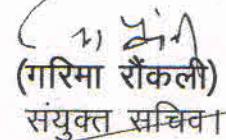 (गरिमा रौंकली)
संयुक्त सचिव।